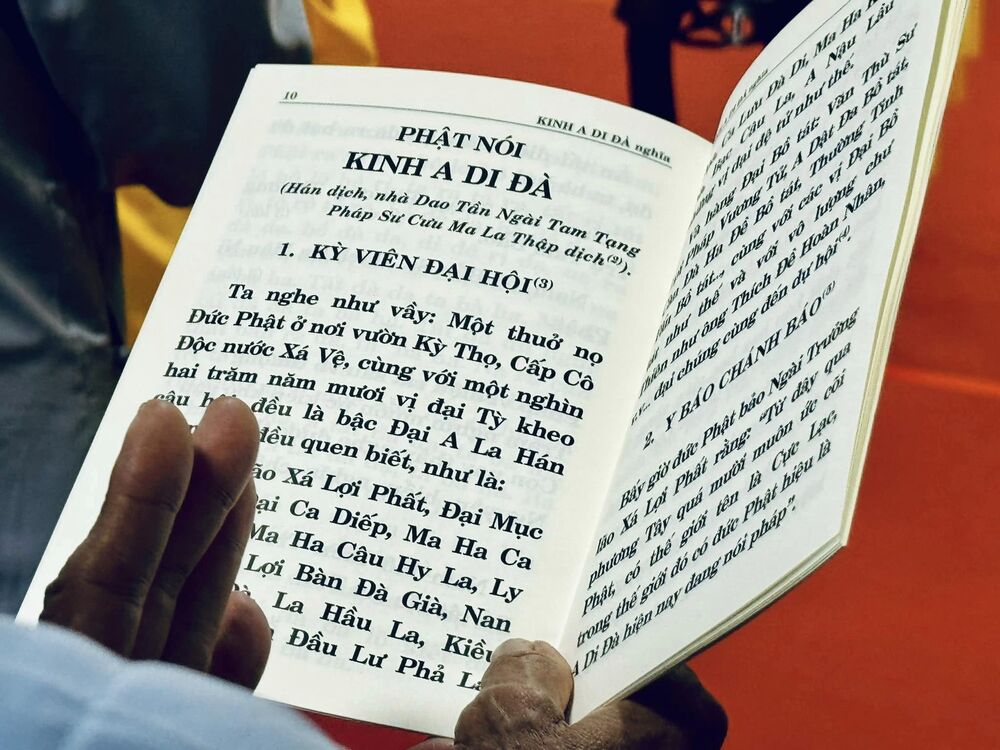 10
KINH A DI ĐÀ nghĩa
PHẬT NÓI
KINH A DI ĐÀ
(Hán dịch, nhà Dao Tần Ngài Tam Tạng
Pháp Sư Cưu Ma La Thập dịch(2)).
1. KỲ VIÊN ĐẠI HỘI(3)
Ta nghe như vầy: Một thuở nọ
Đức Phật ở nơi vườn Kỳ Thọ, Cấp Cô
Độc nước Xá Vệ, cùng với một nghìn
hai trăm năm mươi vị đại Tỳ kheo
câu hội đều là bậc Đại A La Hán
đều quen biết, như là:
Xá Lợi Phất, Đại Mục
Ca Diếp, Ma Ha Ca
Ma Ha Câu Hy La, Ly
Lợi Bàn Đà Già, Nan
La Hầu La, Kiều
Đầu Lư Phả La
Lưu Đà Di, Ma Ha
Bạc Câu La, A Nậu Lâu
vị đại đệ tử như thế.
hàng Đại Bồ tát: Văn Thù Sư
Pháp Vương Tử, A Dật Đa Bồ tát,
Đà Ha Đề Bồ tát, Thường Tinh
Bồ tát... cùng với các vị đại Bồ
như thế và với vô lượng chư
như ông Thích Đề Hoàn Nhân,
đại chúng cùng đến dự hội(4).
2. Y BÁO CHÁNH BÁO(5)
Bấy giờ đức Phật bảo Ngài Trưởng
lão Xá Lợi Phất rằng: "Từ đây qua
phương Tây quá mười muôn ức cõi
Phật, có thế giới tên là Cực Lạc,
trong thế giới đó có đức Phật hiệu là
A Di Đà hiện nay đang nói pháp".